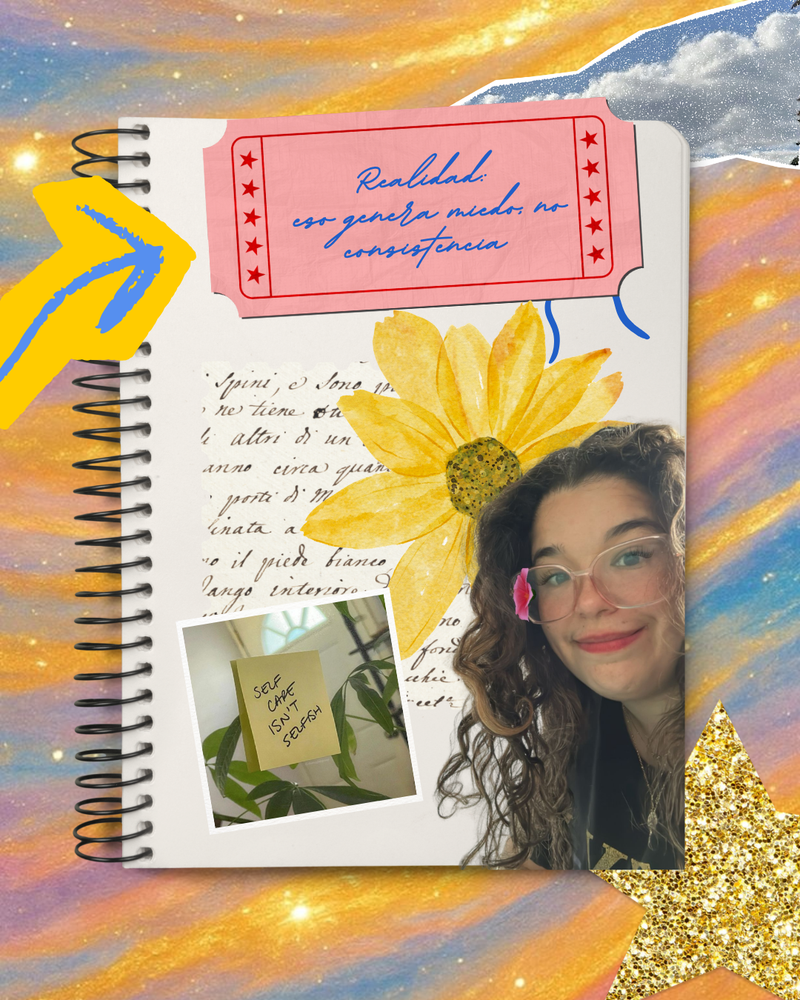 Realidad:
eso genera miedo, no
consistencia
spini, e sono
ne tiene
altri di un
anno circa quan
porti di M
inata a
o il piede bianco
ango interiore
no
SELF
CARE
ISN'T
SELFISH